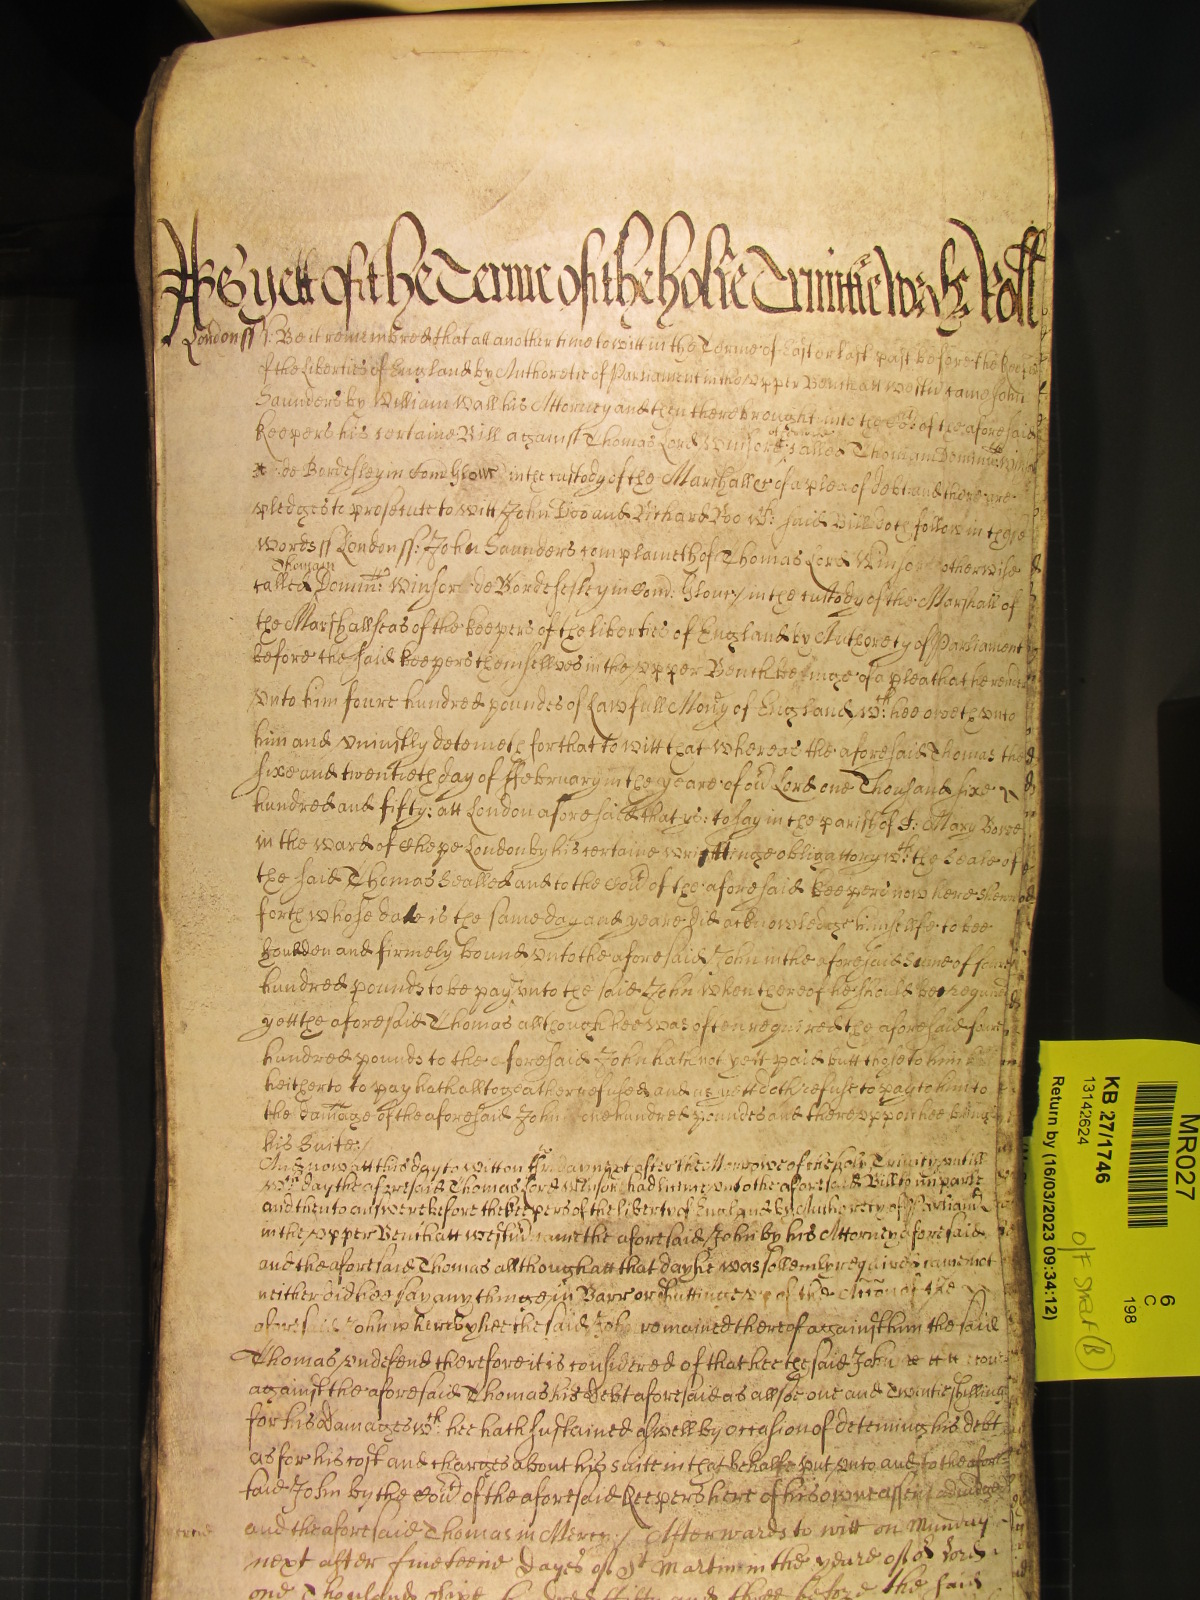 As yett of the Terme of the holie Trinitie Roll
London ss Be it remembred that att another time to witt in the Terme of Easter last past before the keepers
of the Liberties of England by Authoretie of Parliament in the Upper Bench att Westm came John
Saunders by William Wall his Attorney and then there brought into the Court of the aforesaid
keepers his certaine Bill against Thomas Lord Winsor called Thomam Dominum
de Bordesley in Com in the custody of the Marshall &c of a plea of debt and there are
pledges to prosecute to witt John Doo and Richard Roo wch said Bill doth follow in these
words ss London ss: John Saunders complaineth of Thomas Lord Winsor otherwise
Thomam
called Dominu Winsor de Bordesley in Com in the custody of the Marshall of
the Marshallseas of the keepers of the liberties of England by Authorety of Parliament
before the said keepers themsellves in the Upper Bench beinge of a plea that he render
unto him foure hundred poundes of Lawfull Mony of England wch hee oweth unto
him and uniustly deteineth for that to witt that whereas the aforesaid Thomas the
sixe and twentieth day of ffebruary in the yeare of our Lord one Thousand sixe
hundred and fifty: att London aforesaid that ys: to say in the parish of St: Mary Bowe
in the ward of Chepe London by his certaine writtinge obligattory wth the Seale of
the said Thomas sealled and to the Court of the aforesaid keepers now here shewed
forth whose date is the same day and yeare did acknowledge himselfe to bee
houlden and firmely bound unto the aforesaid John in the aforesaid sume of foure
hundred pounds to be payd unto the said John when thereof he should bee required
yett the aforesaid Thomas allthough hee was often required the aforesaid foure
hundred pounds to the aforesaid John hath not yett paid butt those to him
heitherto to pay hath alltogeather refused and as yett doth refuse to pay to him to
the damage of the aforesaid John one hundred poundes and thereuppon hee brings
his suite:/
And now att this day to witt on Fryday next after the Morrowe of the holy Trinity untill
wch day the aforesaid Thomas Lord Winsor had leave unto the aforesaid Bill to imparle
and then to answere before the keepers of the liberty of England by Authorety of Parliamt
in the Upper Bench att Westm came the aforesaid John by his Attorney aforesaid
and the aforesaid Thomas allthough att that day he was sollemly required came not
neither did hee say any thinge in Barr or the Action of the
aforesaid John whereby hee the said John remained thereof against him the said
Thomas undefend therefore it is considered of that hee the said John
against the aforesaid Thomas his Debt aforesaid as allsoe one and Twentie shillings
for his Damages wch hee hath sustained aswell by occasion of deteining his debt
as for his cost and charges about his suite in that behalfe put unto and to the afore
said John by the Court of the aforesaid keepers here of his owne assent adiudged
and the aforesaid Thomas in Mercy:/ Afterwards to witt on Munday
next after fineteene Dayes of St Martin in the yeare of or Lord
one Thousand Sixe hundred fifty and three before the said
MR027
6
C
198
KB 27/1746
13142624
Return by (16/03/2023 09:34:12)